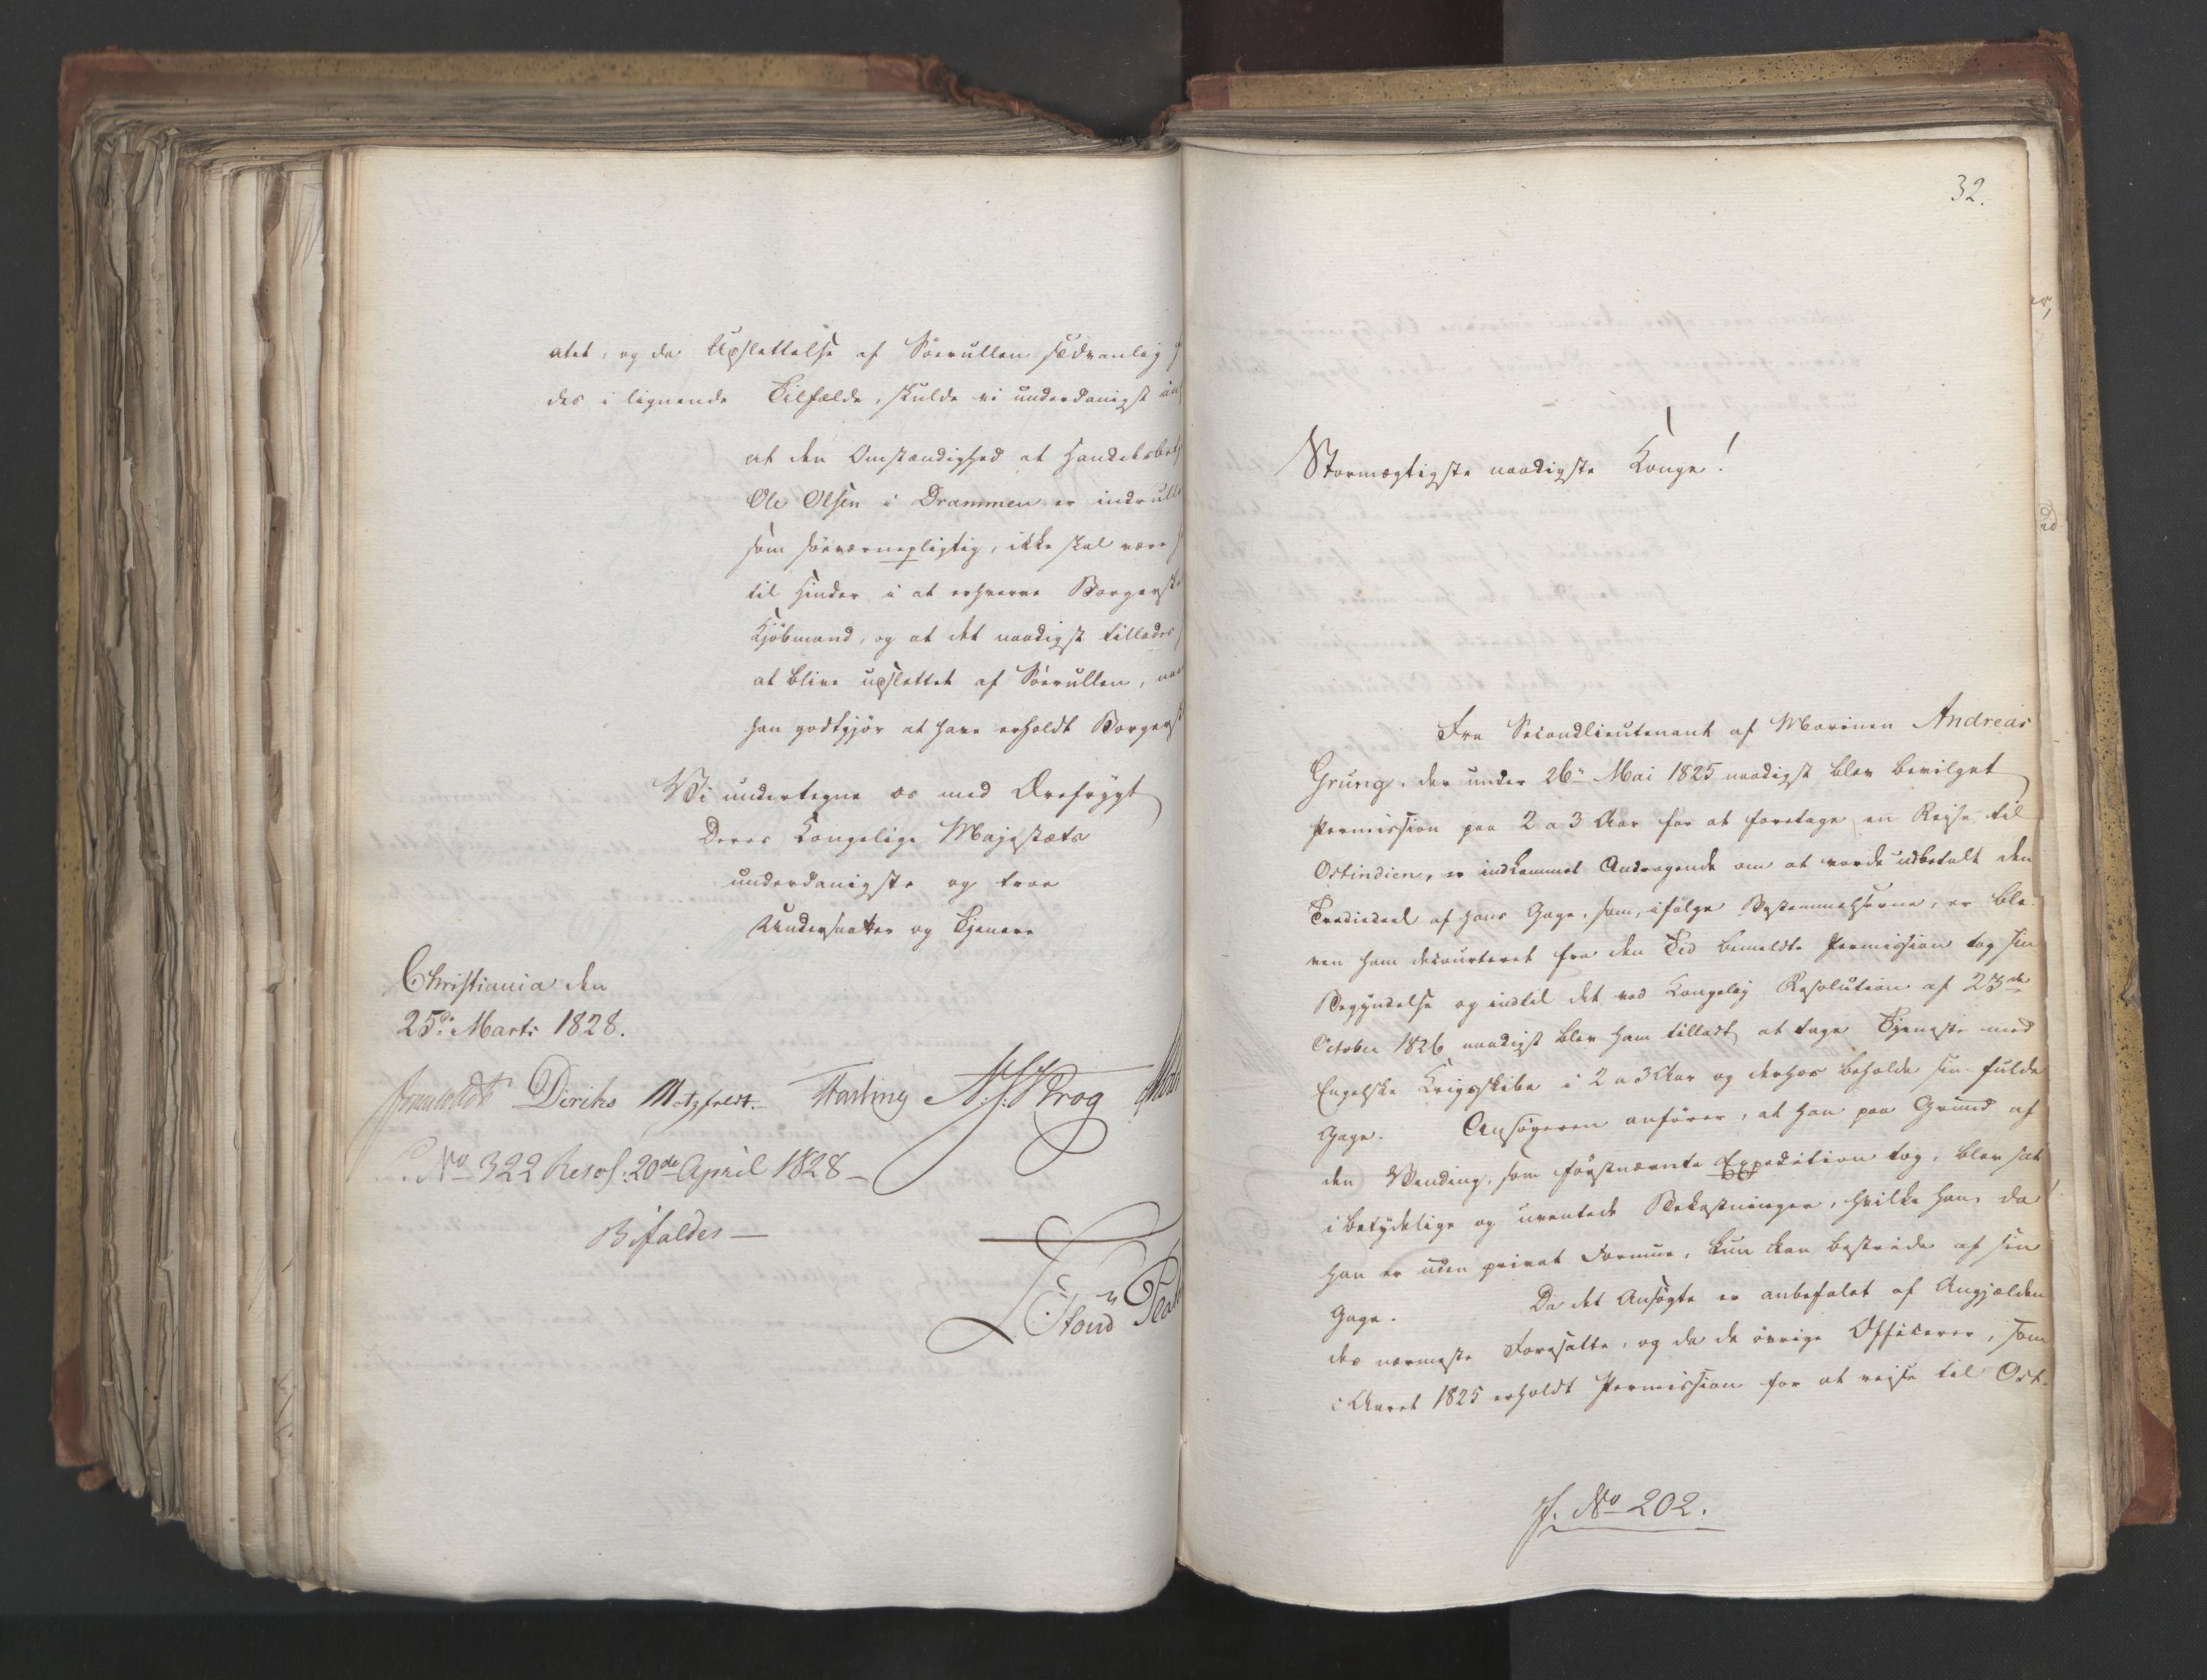 atet, og da Udslettelse af Søerullen sædvanlig
des i lignende Tilfælde, skulde vi underdanigst
at den Omstændighed at Handelsbet
Ole Olsen i Drammen er indrull
som søeværnepligtig, ikke skal være
til Hinder i at erhverve Borgersk
Kjøbmand, og at det naadigst tillades
at blive udslettet af Søerullen, naar
han godtgjør at have erholdt Borgers
Vi undertegne os med Ærefrygt
Deres Kongelige Majestæts
underdanigste og troe
Undersaatter og Tjenere
Christiania den
25de Marts 1828.
Diriks Motzfeldt. Fasting Krog
No 322 Resol: 20de April 1828 –
Bifaldes –
32.
Stormægtigste naadigste Konge!
Fra Secondlieutenant af Marinen Andreas
Grüng, der under 26de Mai 1825 naadigst blev bevilget
Permission paa 2 a 3 Aar for at foretage en Rejse til
Ostindien, er indkommet Andragende om at vorde udbetalt den
Trediedeel af hans Gage, som, ifølge Bestemmelserne, er ble-
ven ham decourteret fra den Tid bemeldte Permission tog sin
Begyndelse og indtil det ved Kongelig Resolution af 23de
October 1826 naadigst blev ham tilladt at tage Tjeneste med
Engelske Krigsskibe i 2 a 3 Aar og derhos beholde sin fulde
Gage. Ansøgeren anfører, at han paa Grund af
den Vending, som førstnævnte Expedition tog, blev sat
i betydelige og uventede Bekostninger, hvilke han, da
han er uden privat Formue, kun kan bestride af sin
Gage. Da det Ansøgte er anbefalet af Angjælden-
des nærmeste Foresatte, og da de øvrige Officerer, som
i Aaret 1825 erholdt Permission for at rejse til Ost-
J. No 202.